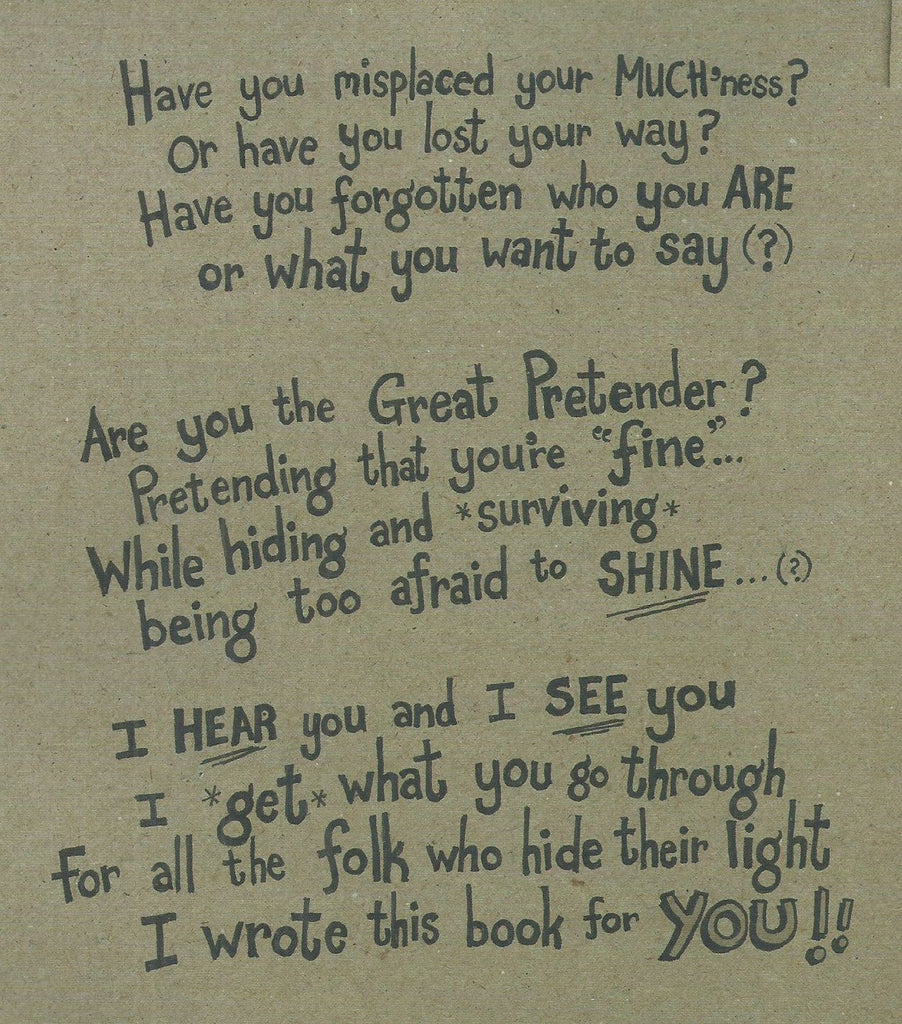 Have you misplaced your MUCH'ness?
Or have you lost your way?
Have you forgotten who you ARE
or what you want to say (?)
Are you the Great Pretender?
Pretending that you're "fine"...
While hiding and *surviving*
being too afraid to SHINE... (?)
I HEAR you and I SEE you
I *get* what you go through
For all the folk who hide their light
I wrote this book for YOU!!